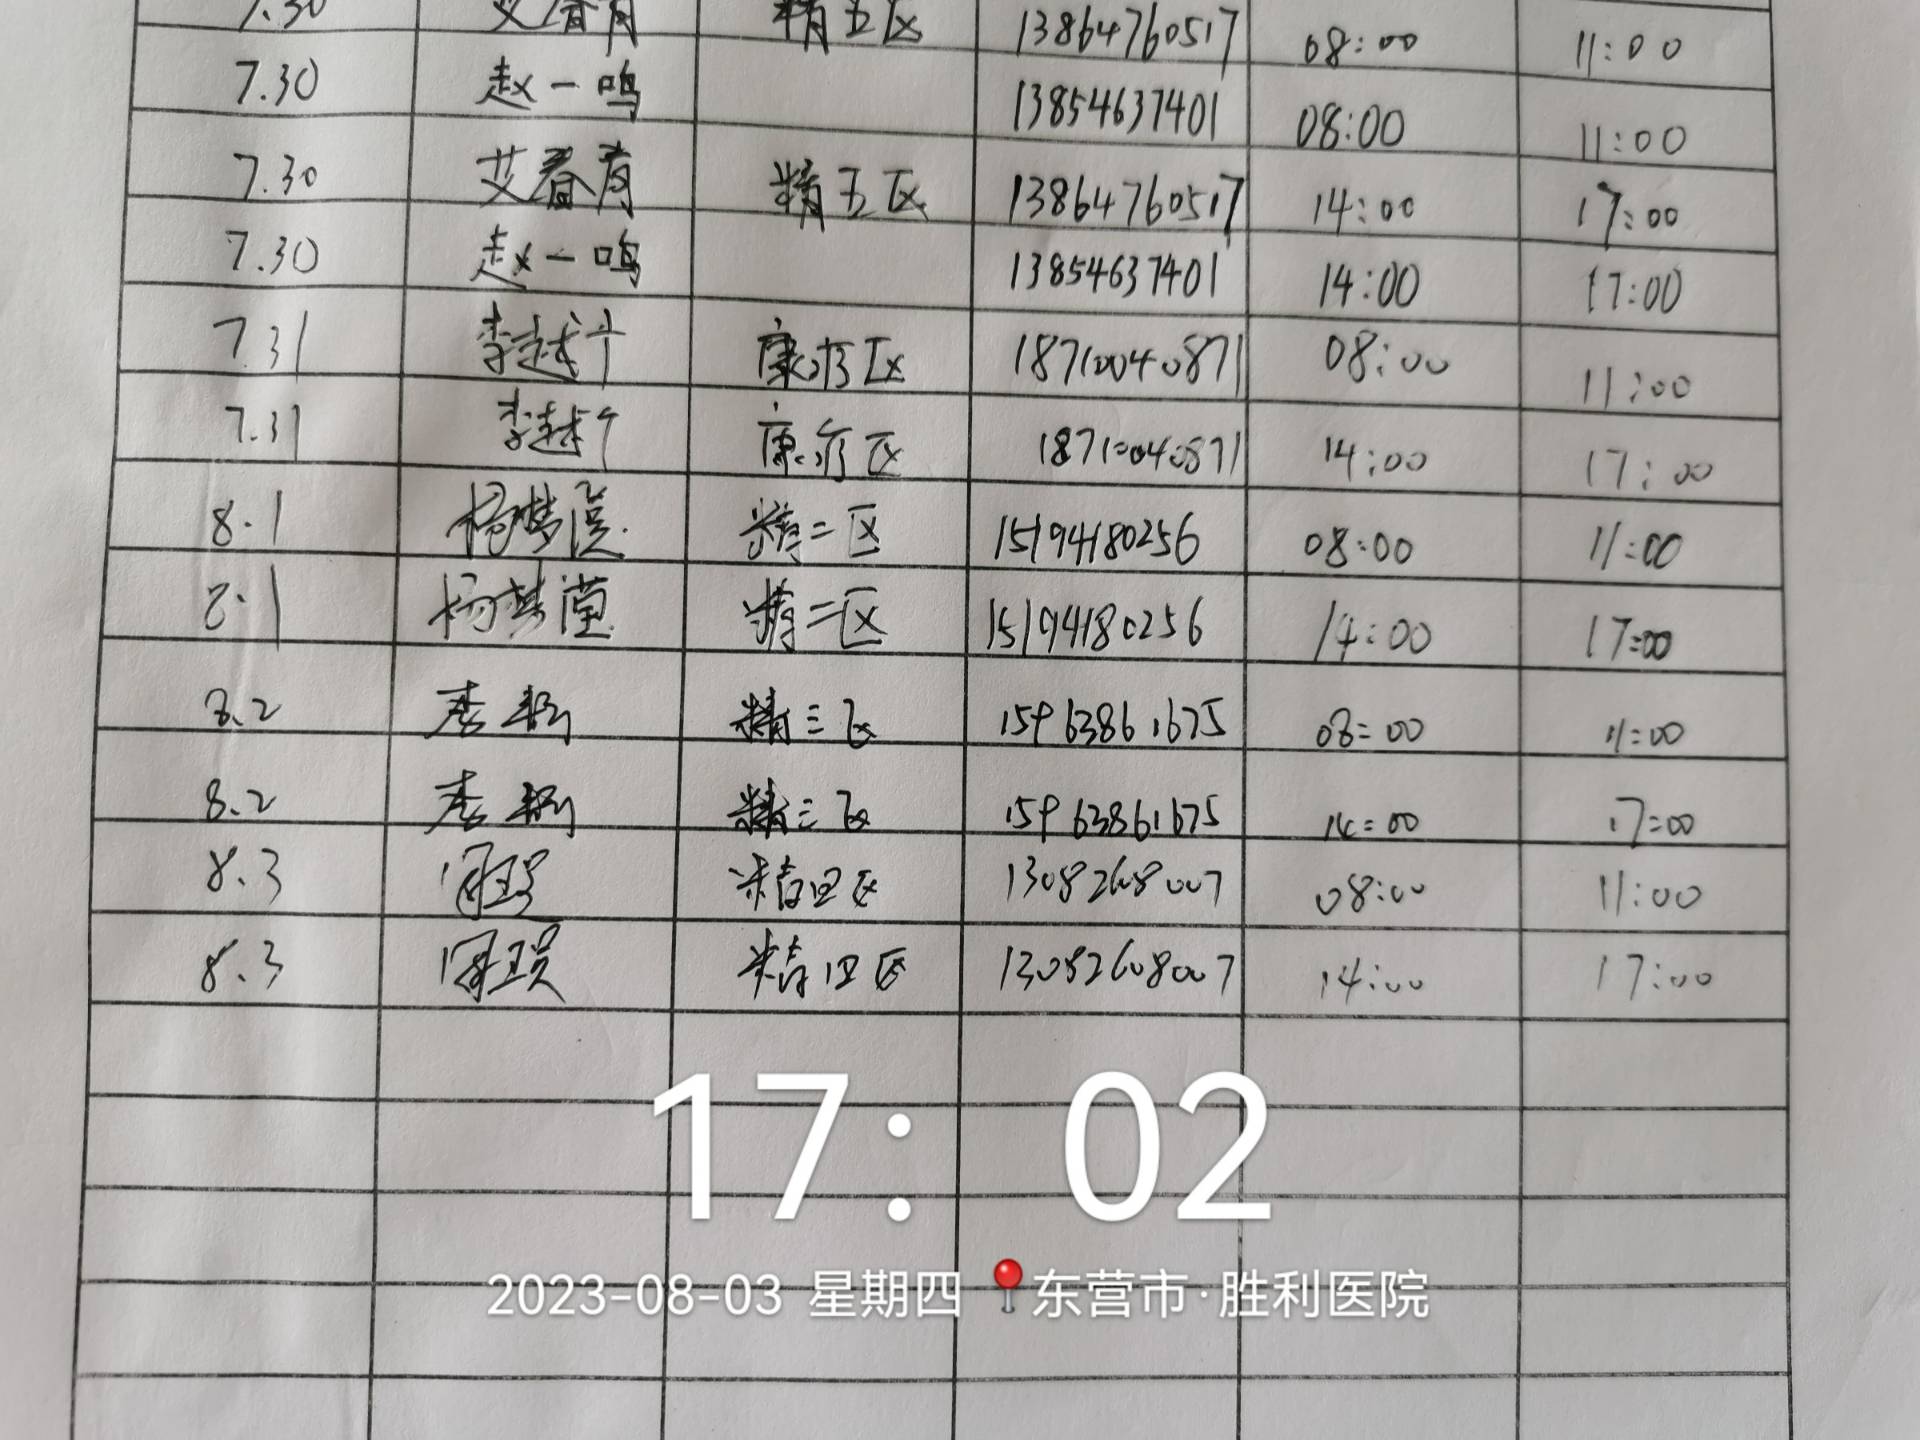 7.30 艾春育 精五区 13864760517 08:00 11:00
7.30 赵一鸣 13854637401 08:00 11:00
7.30 艾春育 精五区 13864760517 14:00 17:00
7.30 赵一鸣 13854637401 14:00 17:00
7.31 李越 康疗区 18710040871 08:00 11:00
7.31 李越 康疗区 18710040871 14:00 17:00
8.1 杨梦滢 精二区 15194180256 08:00 11:00
8.1 杨梦滢 精二区 15194180256 14:00 17:00
8.2 李 精三区 15963861675 08:00 11:00
8.2 李 精三区 15963861675 14:00 17:00
8.3 精四区 13082608007 08:00 11:00
8.3 精四区 13082608007 14:00 17:00
17: 02
2023-08-03 星期四 东营市·胜利医院